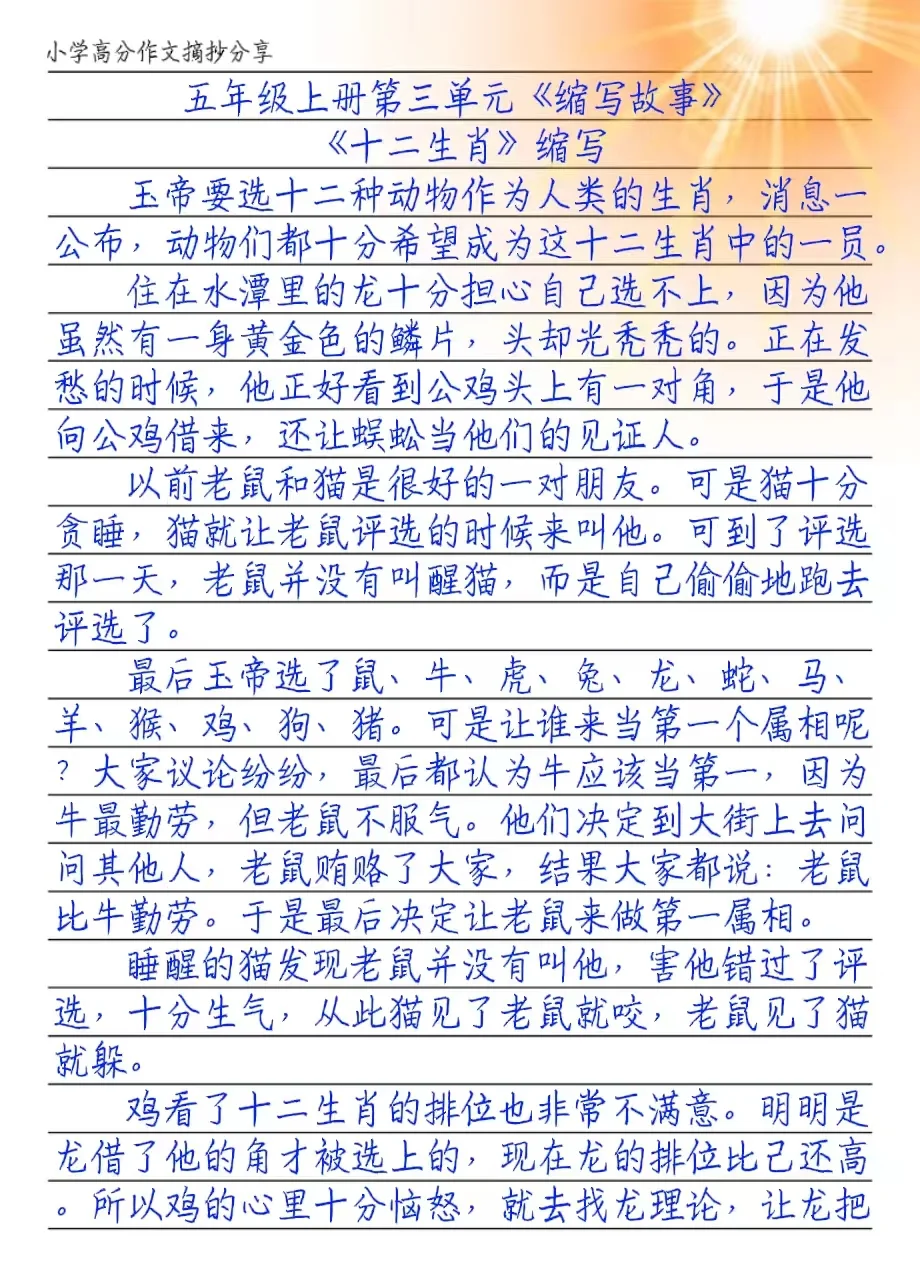 小学高分作文摘抄分享
五年级上册第三单元《缩写故事》
《十二生肖》缩写
玉帝要选十二种动物作为人类的生肖，消息一
公布，动物们都十分希望成为这十二生肖中的一员。
住在水潭里的龙十分担心自己选不上，因为他
虽然有一身黄金色的鳞片，头却光秃秃的。正在发
愁的时候，他正好看到公鸡头上有一对角，于是他
向公鸡借来，还让蜈蚣当他们的见证人。
以前老鼠和猫是很好的一对朋友。可是猫十分
贪睡，猫就让老鼠评选的时候来叫他。可到了评选
那一天，老鼠并没有叫醒猫，而是自己偷偷地跑去
评选了。
最后玉帝选了鼠、牛、虎、兔、龙、蛇、马、
羊、猴、鸡、狗、猪。可是让谁来当第一个属相呢
？大家议论纷纷，最后都认为牛应该当第一，因为
牛最勤劳，但老鼠不服气。他们决定到大街上去问
问其他人，老鼠贿赂了大家，结果大家都说：老鼠
比牛勤劳。于是最后决定让老鼠来做第一属相。
睡醒的猫发现老鼠并没有叫他，害他错过了评
选，十分生气，从此猫见了老鼠就咬，老鼠见了猫
就躲。
鸡看了十二生肖的排位也非常不满意。明明是
龙借了他的角才被选上的，现在龙的排位比己还高
。所以鸡的心里十分恼怒，就去找龙理论，让龙把